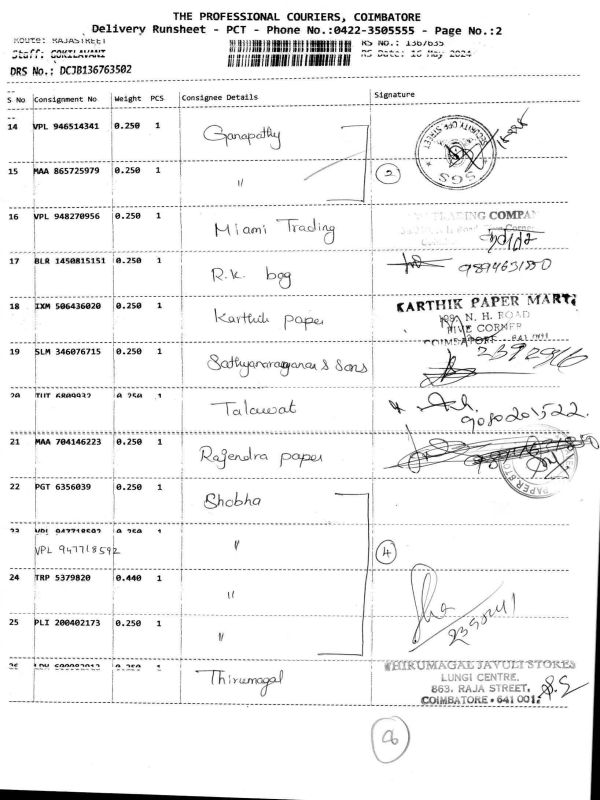 THE PROFESSIONAL COURIERS, COIMBATORE
Delivery Runsheet - PCT - Phone No.:0422-3505555 - Page No.:2
Route: RAJASTREET
RS No.: 1367635
Staff: GOKILAVANI
RS Date: 16 May 2024
DRS No.: DCJB136763502
S No Consignment No Weight PCS Consignee Details Signature
14 VPL 946514341 0.250 1 Ganapathy
SECURITY OFF STREET
SGS
15 MAA 865725979 0.250 1 "
2
16 VPL 948270956 0.250 1 Miami Trading
TRADING COMPAN
17 BLR 1450815151 0.250 1 R.K. bag
18 IXM 506436020 0.250 1 Karthik paper
KARTHIK PAPER MART
N. H. ROAD
FIVE CORNER
COIMBATORE - 641 001
19 SLM 346076715 0.250 1 Sathyanarayanan & Sons
20 TUT 6809932 0.250 1 Talawat
9080201522
21 MAA 704146223 0.250 1 Rajendra paper
PAPER STO
22 PGT 6356039 0.250 1 Shobha
23 VPL 947718592 0.250 1 "
VPL 947718592
4
24 TRP 5379820 0.440 1 "
25 PLI 200402173 0.250 1 "
26 0.250 1 Thirumagal
THIRUMAGAL JAVULI STORES
LUNGI CENTRE,
863, RAJA STREET,
COIMBATORE - 641 001.